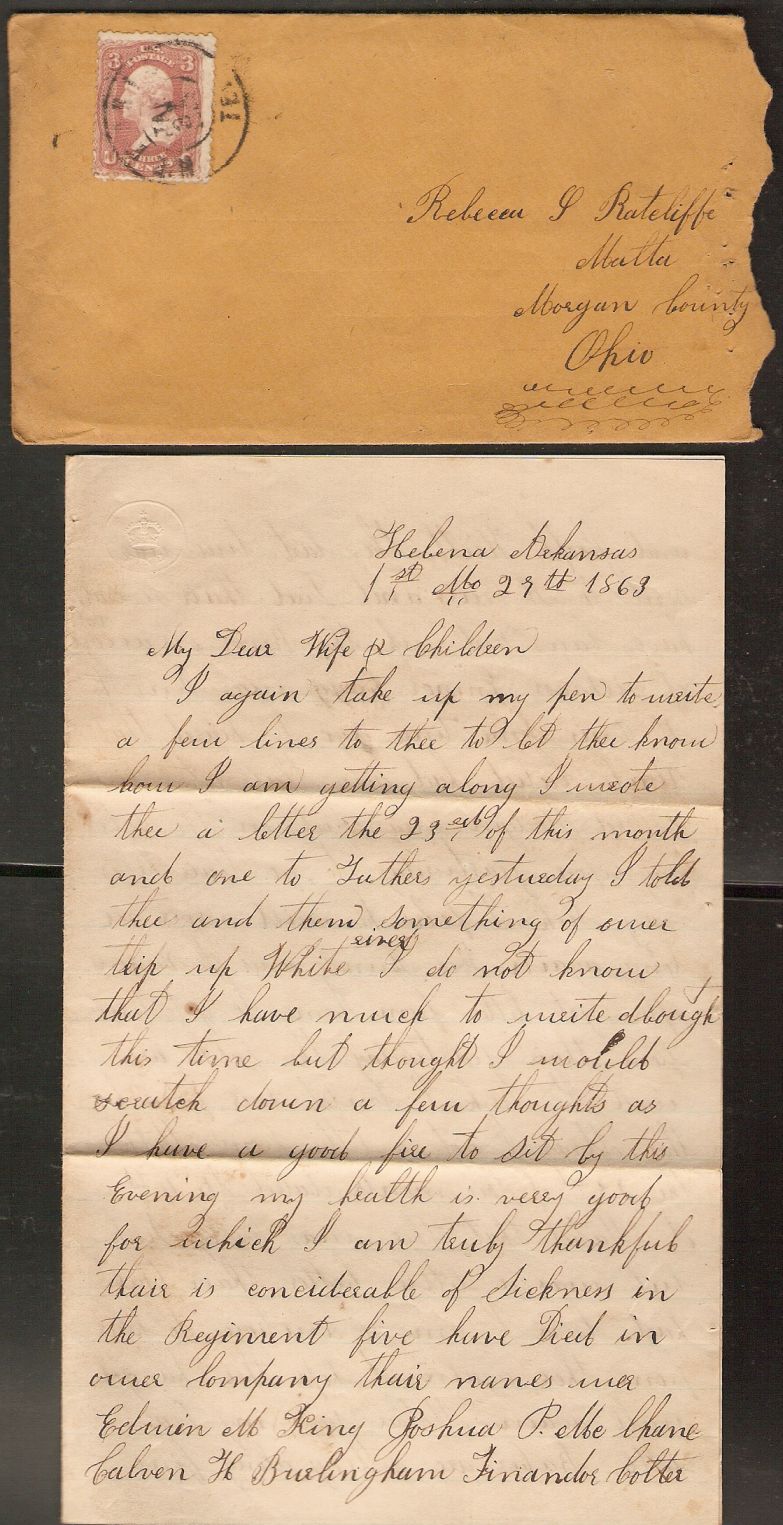 3 U.S. 3
POSTAGE
THREE
CENTS
TE
Rebecca S Ratcliffe
Malta
Morgan County
Ohio
Helena Arkansas
1st Mo 29th 1863
My Dear Wife & Children
I again take up my pen to write
a few lines to thee to let thee know
how I am getting along I wrote
thee a letter the 23rd of this month
and one to Fathers yesturday I told
thee and them something of ower
trip up White river I do not know
that I have much to write about
this time but thought I would
scratch down a few thoughts as
I have a good fire to sit by this
Evening my health is verry good
for which I am truly thankful
thair is conciderable of Sickness in
the Regiment five have Died in
ower Company thair names wer
Edwin M King Joshua P. Mc Chane
Calven H Burlingham Finandor Colter